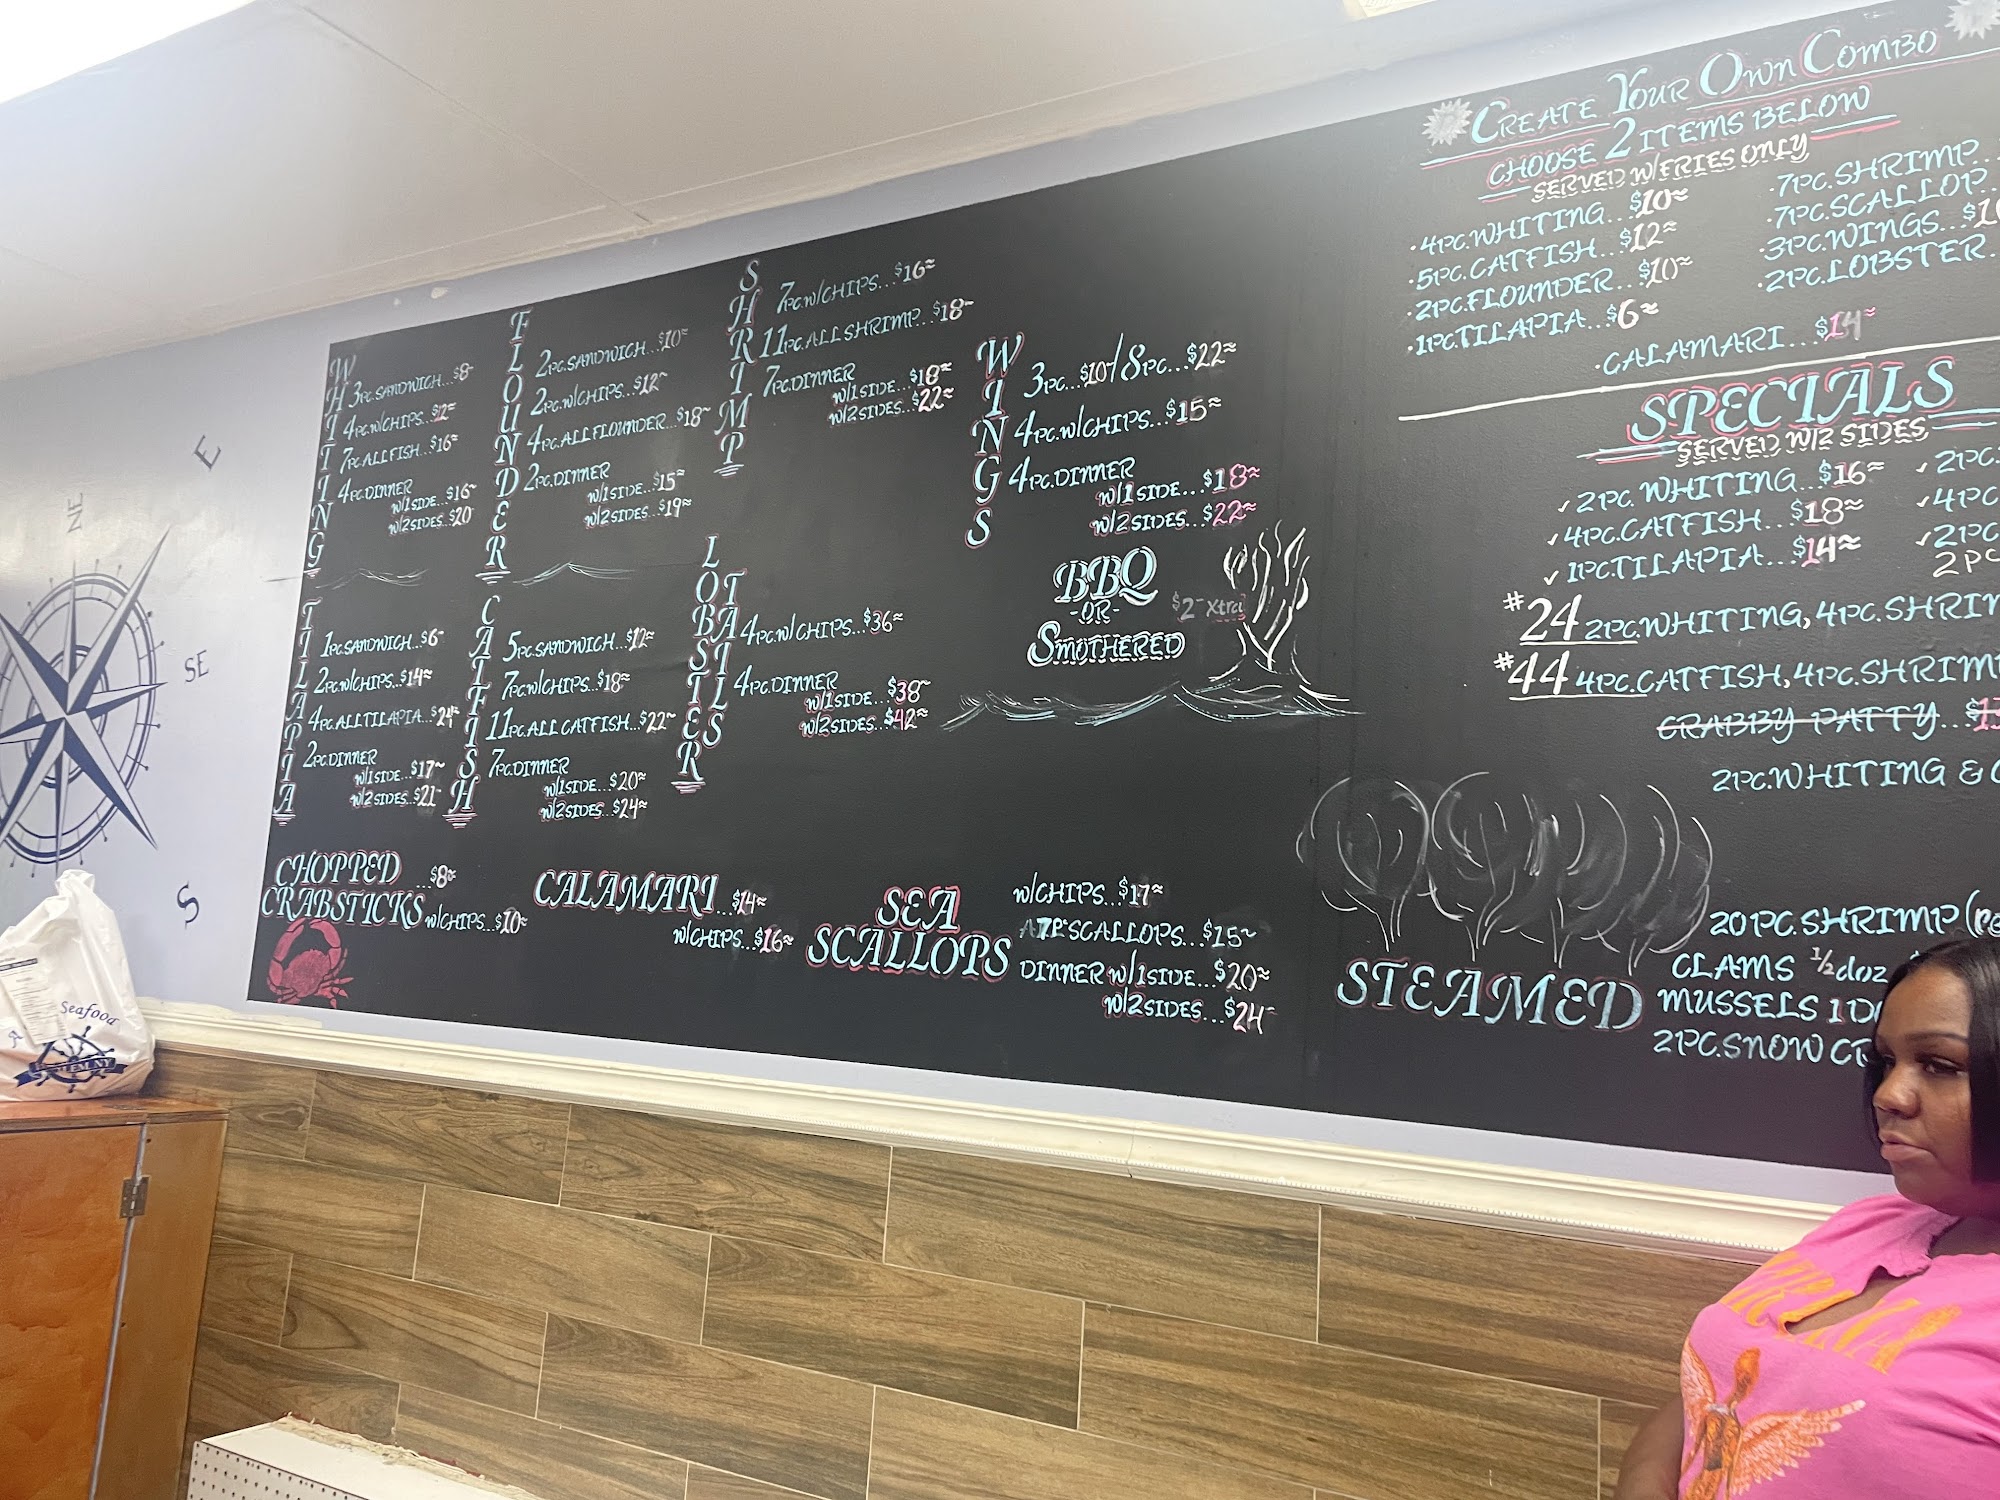 WHITING
3PC.SANDWICH...$8
4PC.W/CHIPS...$12
7PC ALL FISH...$16
4PC.DINNER
W/1SIDE...$16
W/2SIDES..$20
FLOUNDER
2PC.SANDWICH...$10
2PC.W/CHIPS...$12
4PC.ALL FLOUNDER...$18
2PC.DINNER
W/1SIDE...$15
W/2SIDES...$19
SHRIMP
7PC.W/CHIPS...$16
11PC.ALL SHRIMP...$18
7PC.DINNER
W/1SIDE...$18
W/2SIDES...$22
WINGS
3PC...$10/8PC...$22
4PC.W/CHIPS...$15
4PC.DINNER
W/1SIDE...$18
W/2SIDES...$22
BBQ
-OR-
SMOTHERED
$2 Xtra
TILAPIA
1PC.SANDWICH...$6
2PC.W/CHIPS...$14
4PC.ALL TILAPIA...$24
2PC.DINNER
W/1SIDE...$17
W/2SIDES...$21
CATFISH
5PC.SANDWICH...$12
7PC.W/CHIPS...$18
11PC.ALL CATFISH...$22
7PC.DINNER
W/1SIDE...$20
W/2SIDES...$24
LOBSTER TAILS
4PC.W/CHIPS...$36
4PC.DINNER
W/1SIDE...$38
W/2SIDES...$42
CHOPPED
CRABSTICKS...$8
W/CHIPS...$10
CALAMARI...$14
W/CHIPS...$16
SEA
SCALLOPS
W/CHIPS...$17
7PC SCALLOPS...$15
DINNER W/1SIDE...$20
W/2SIDES...$24
CREATE YOUR OWN COMBO
CHOOSE 2 ITEMS BELOW
SERVED W/FRIES ONLY
•4PC.WHITING...$10
•5PC.CATFISH...$12
•2PC.FLOUNDER...$10
•1PC.TILAPIA...$6
•7PC.SHRIMP...
•7PC.SCALLOP...
•3PC.WINGS...
•2PC.LOBSTER...
•CALAMARI...$14
SPECIALS
SERVED W/2 SIDES
✓2PC. WHITING...$16
✓4PC.CATFISH...$18
✓1PC.TILAPIA...$14
✓2PC.
✓4PC
✓2PC.
2PC
#24 2PC.WHITING, 4PC.SHRIM
#44 4PC.CATFISH, 4PC.SHRIM
CRABBY PATTY...
2PC.WHITING &
STEAMED
20PC.SHRIMP
CLAMS 1/2 doz
MUSSELS 1
2PC.SNOW CR
NE
E
SE
S
Seafood